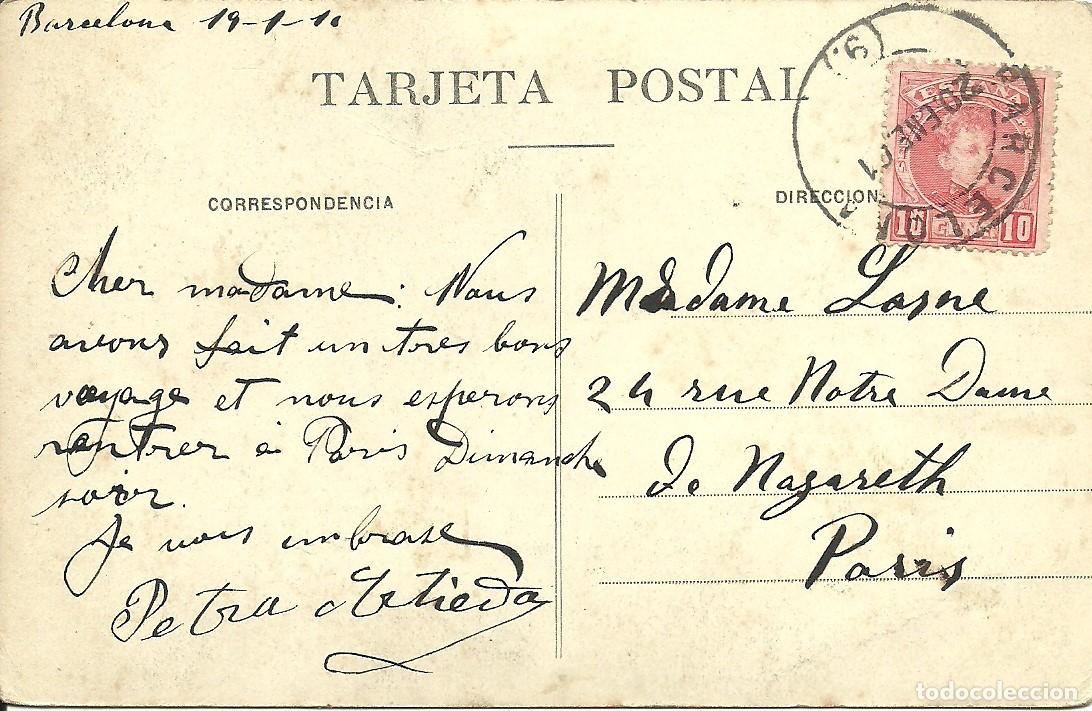 Barcelona 19-1-10
TARJETA POSTAL
CORRESPONDENCIA
Cher madame: Nous
avons fait un tres bons
voyage et nous esperons
rentrer à Paris Dimanche
soir.
Je vous embrase
Petra d'Atieda
DIRECCION
Madame Lasne
24 rue Notre Dame
de Nazareth
Paris
ESPAÑA
10 CENT 10
BARCELONA
20 ENE
todocoleccion